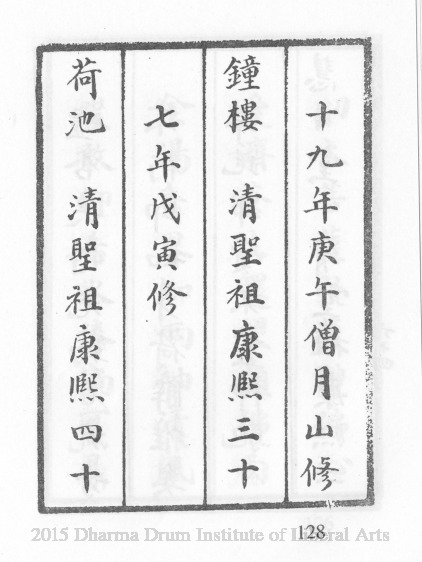 十九年庚午僧月山修
鐘樓 清聖祖康熙三十
七年戊寅修
荷池 清聖祖康熙四十
128
2015 Dharma Drum Institute of Liberal Arts